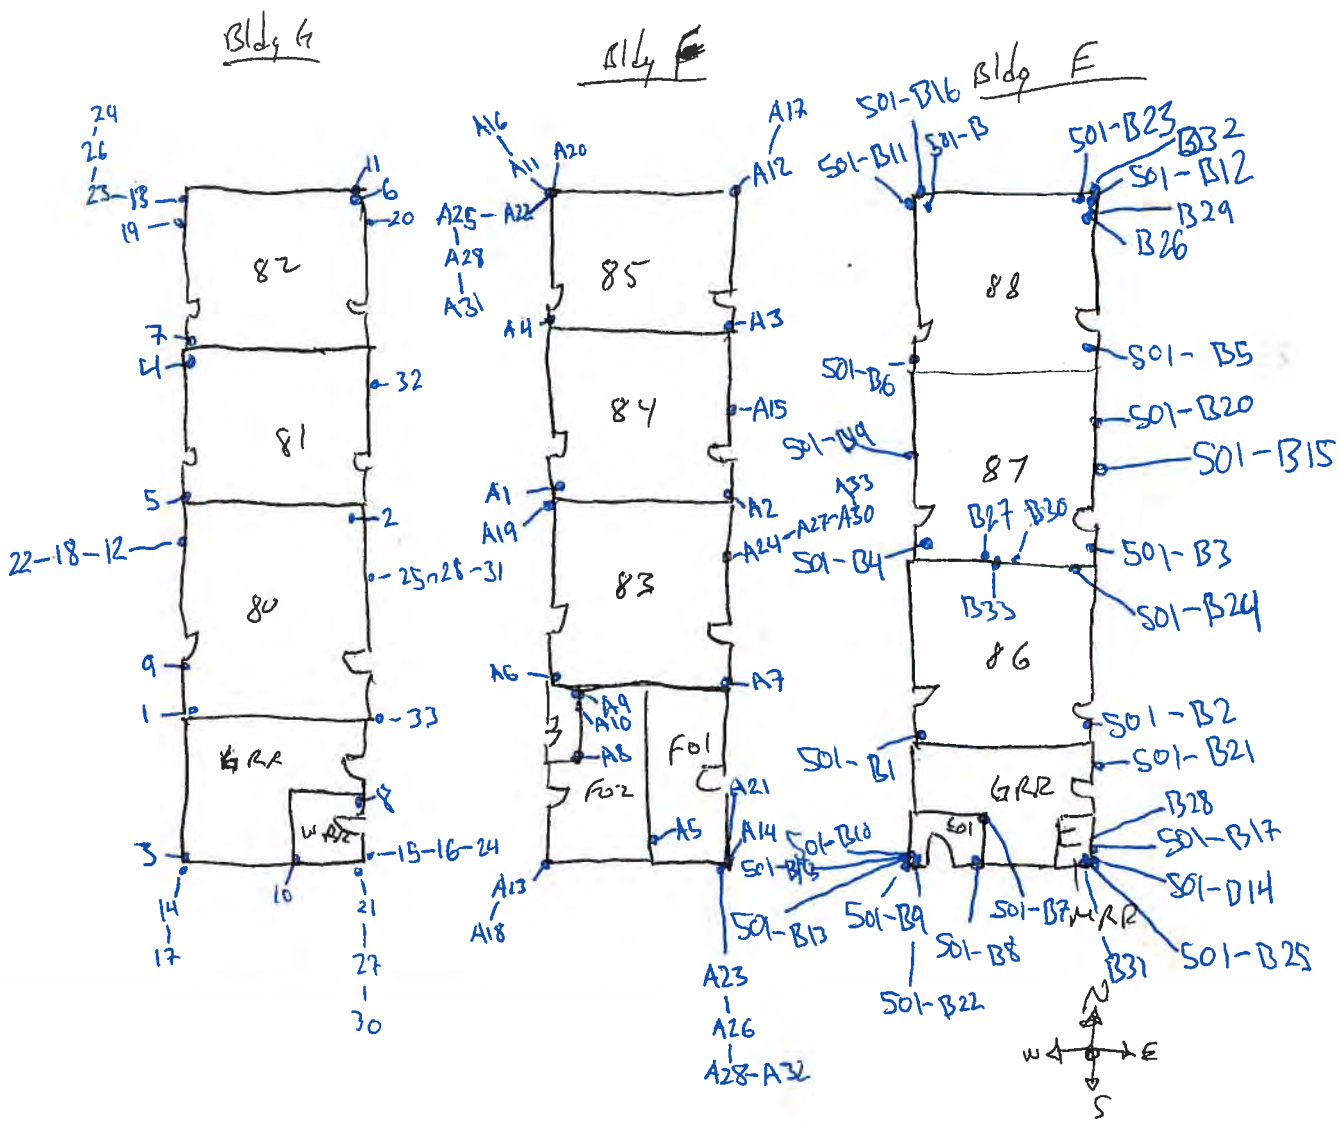 Bldg G
24
26
23-13
19
11
6
20
82
7
4
32
81
5
2
22-18-12
25-28-31
80
9
1
33
GRR
8
WRR
3
15-16-24
10
14
17
21
27
30
Bldg F
A16
A11
A20
A17
A12
A25-A22
A28
A31
85
A4
A3
84
A15
A1
A2
A19
A33
A24-A27-A30
83
A6
A7
A9
A10
A8
F01
F02
A21
A5
A14
A13
A18
A23
A26
A28-A32
Bldg E
501-B16
501-B
501-B11
501-B23
B32
501-B12
B29
B26
88
501-B6
501-B5
501-B20
501-B19
501-B15
87
B27
B30
501-B4
501-B3
B33
501-B24
86
501-B2
501-B1
501-B21
GRR
B28
501
501-B17
501-B10
501-B14
501-B13
501-B9
501-B7
MRR
501-B8
B31
501-B25
501-B22
N
W
E
S